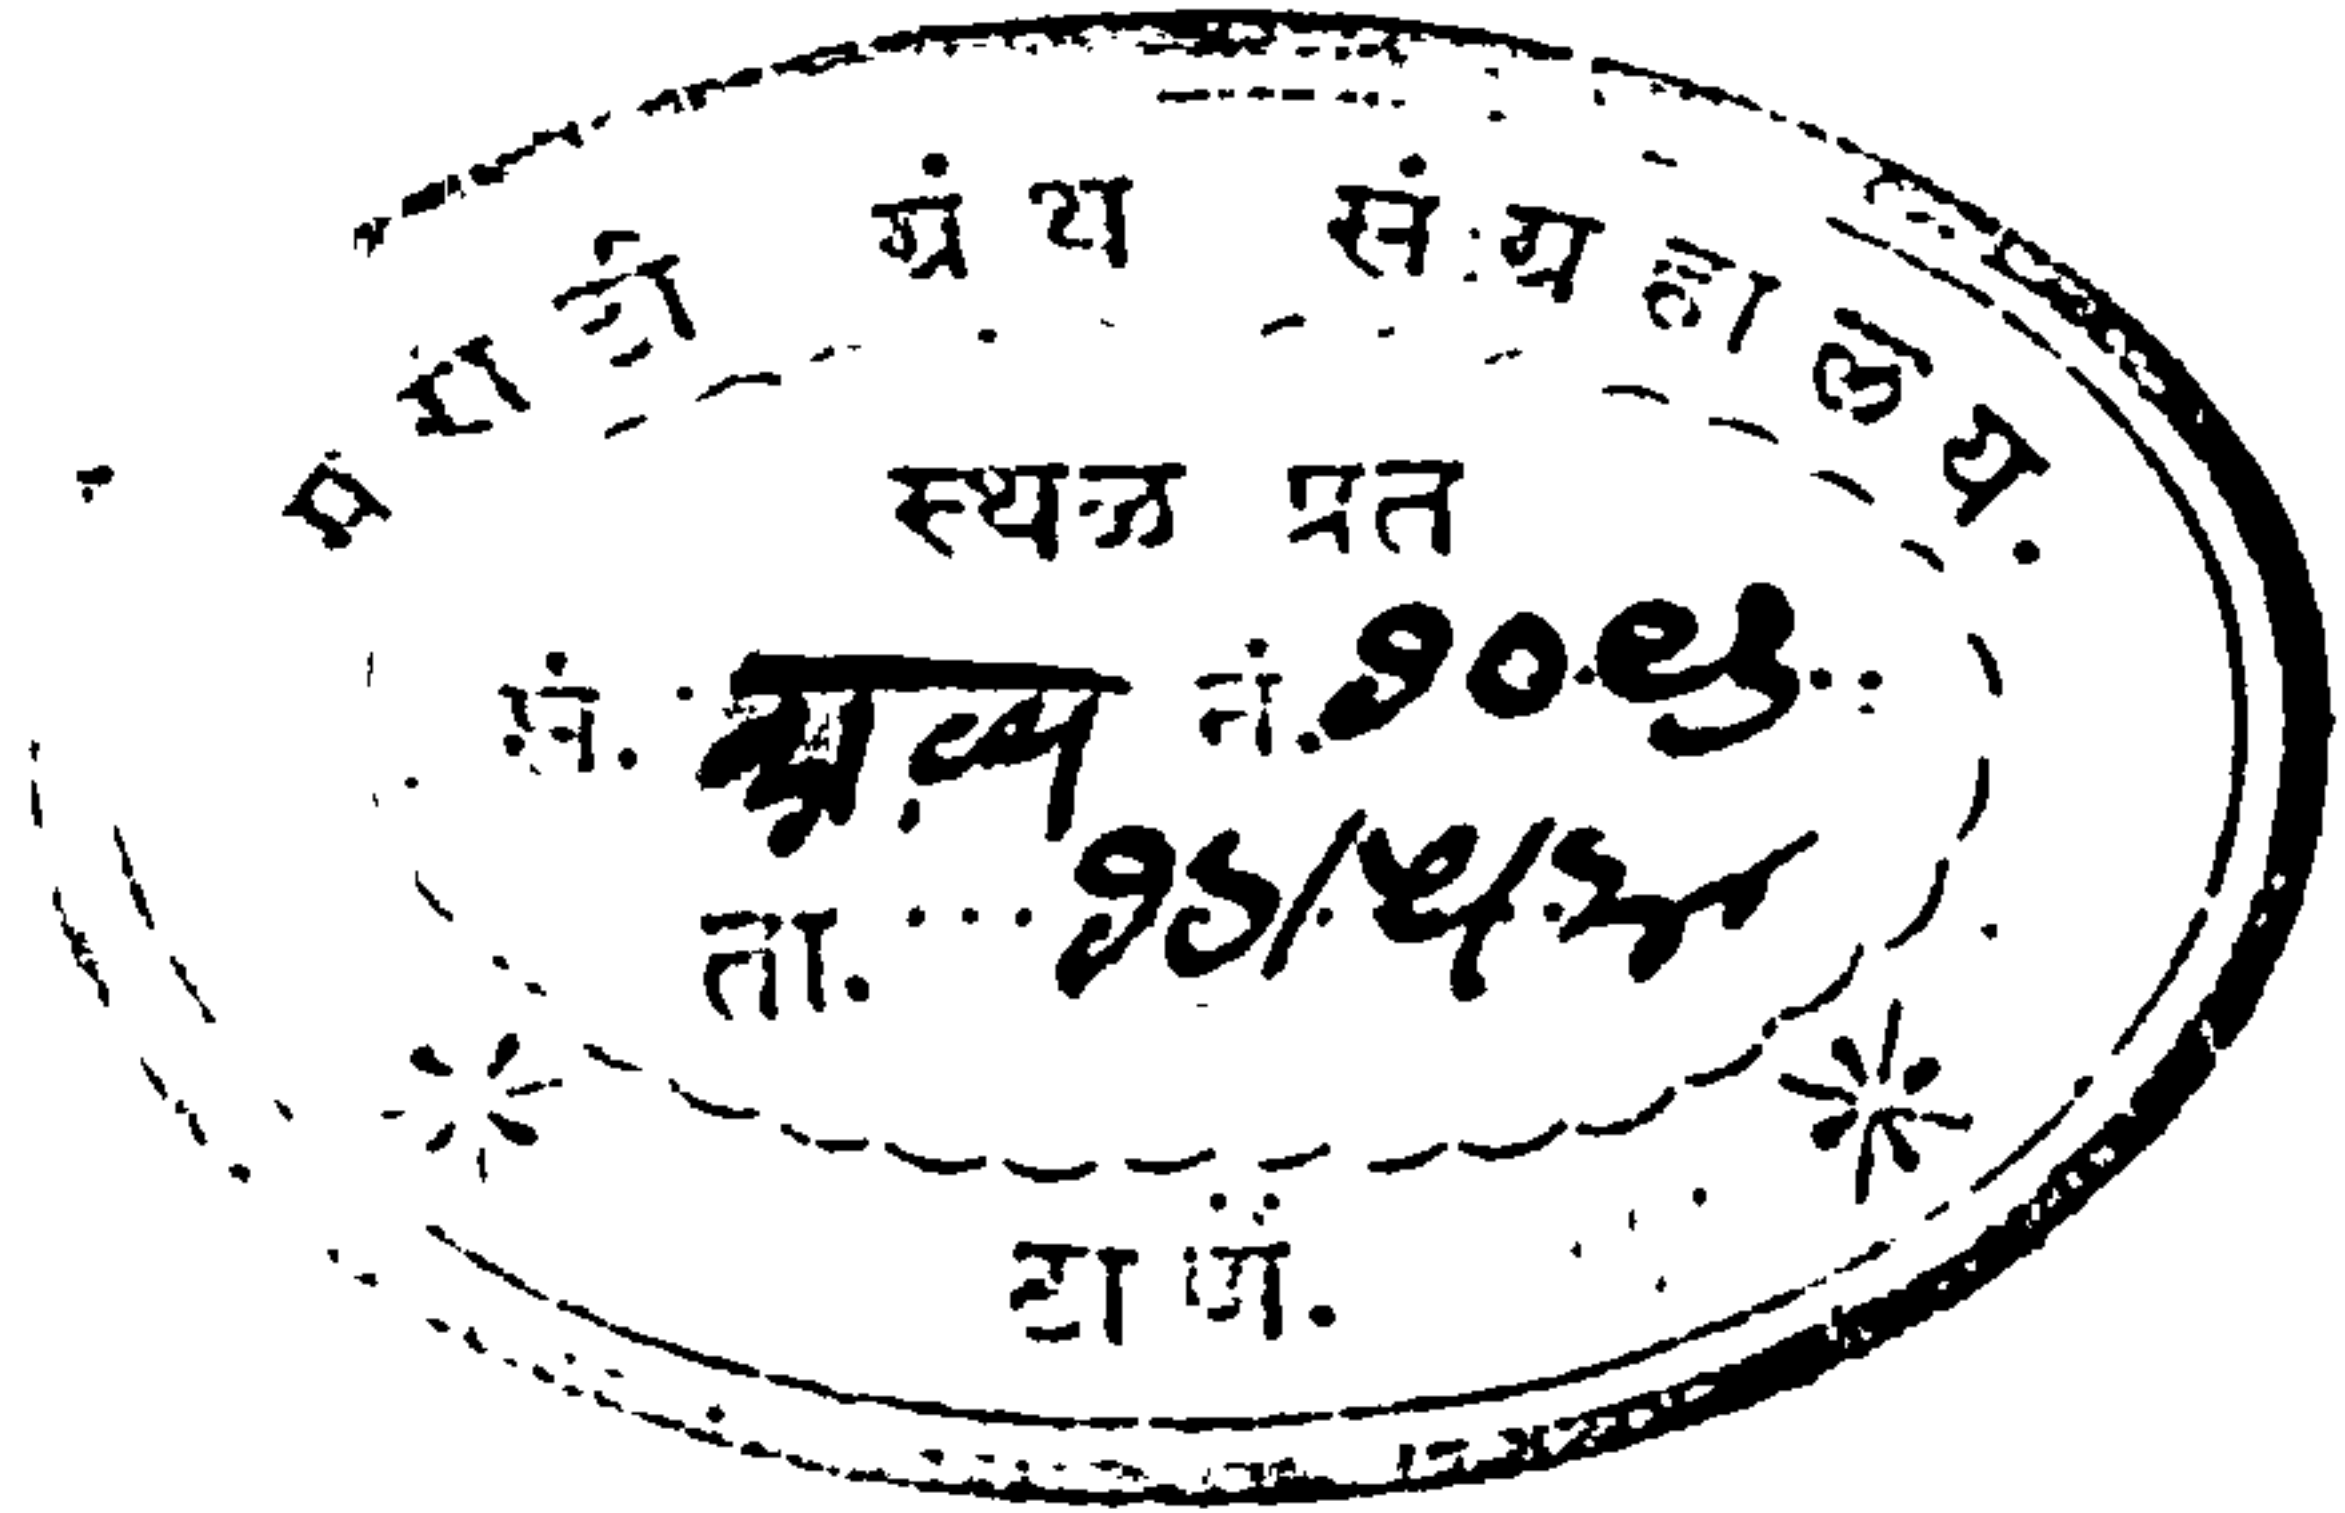 मराठी ग्रंथ संग्रहालय.
स्थळ प्रत
सं. काव्य नं. १०९५
ता. १७/५/३५
ठाणें.